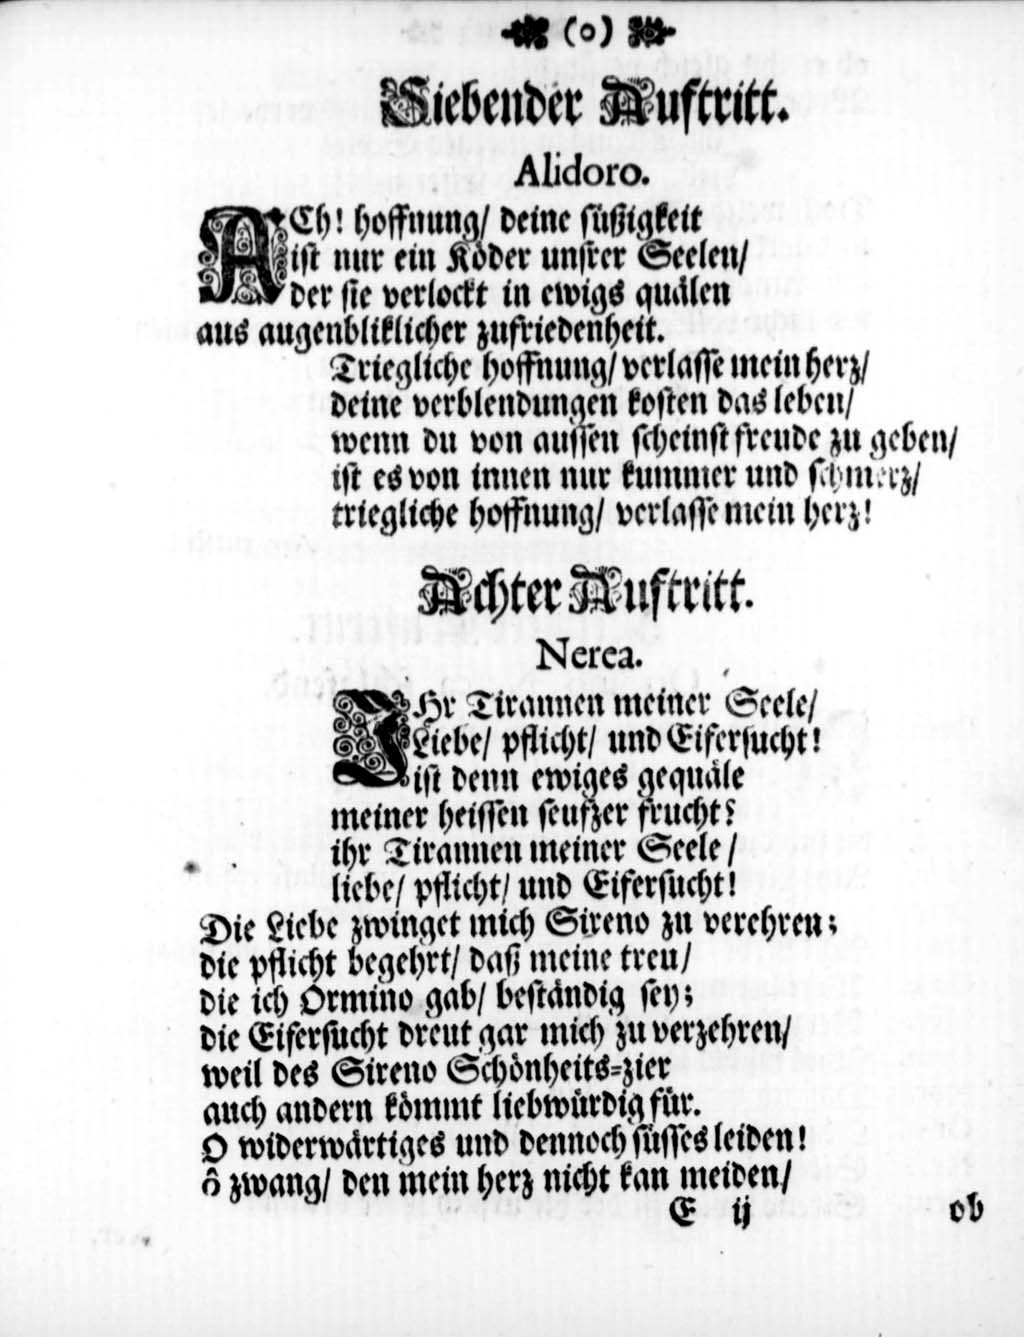 (o)
Siebender Auftritt.
Alidoro.
ACh! hoffnung/ deine süßigkeit
ist nur ein Köder unsrer Seelen/
der sie verlockt in ewigs quälen
aus augenbliklicher zufriedenheit.
Triegliche hoffnung/ verlasse mein herz/
deine verblendungen kosten das leben/
wenn du von aussen scheinst freude zu geben/
ist es von innen nur kummer und schmerz/
triegliche hoffnung/ verlasse mein herz!
Achter Auftritt.
Nerea.
IHr Tirannen meiner Seele/
Liebe/ pflicht/ und Eifersucht!
ist denn ewiges gequäle
meiner heissen seufzer frucht?
ihr Tirannen meiner Seele/
liebe/ pflicht/ und Eifersucht!
Die Liebe zwinget mich Sireno zu verehren;
die pflicht begehrt/ daß meine treu/
die ich Ormino gab/ beständig sey;
die Eifersucht dreut gar mich zu verzehren/
weil des Sireno Schönheits=zier
auch andern kömmt liebwürdig für.
O widerwärtiges und dennoch süsses leiden!
ô zwang/ den mein herz nicht kan meiden/
E ij ob